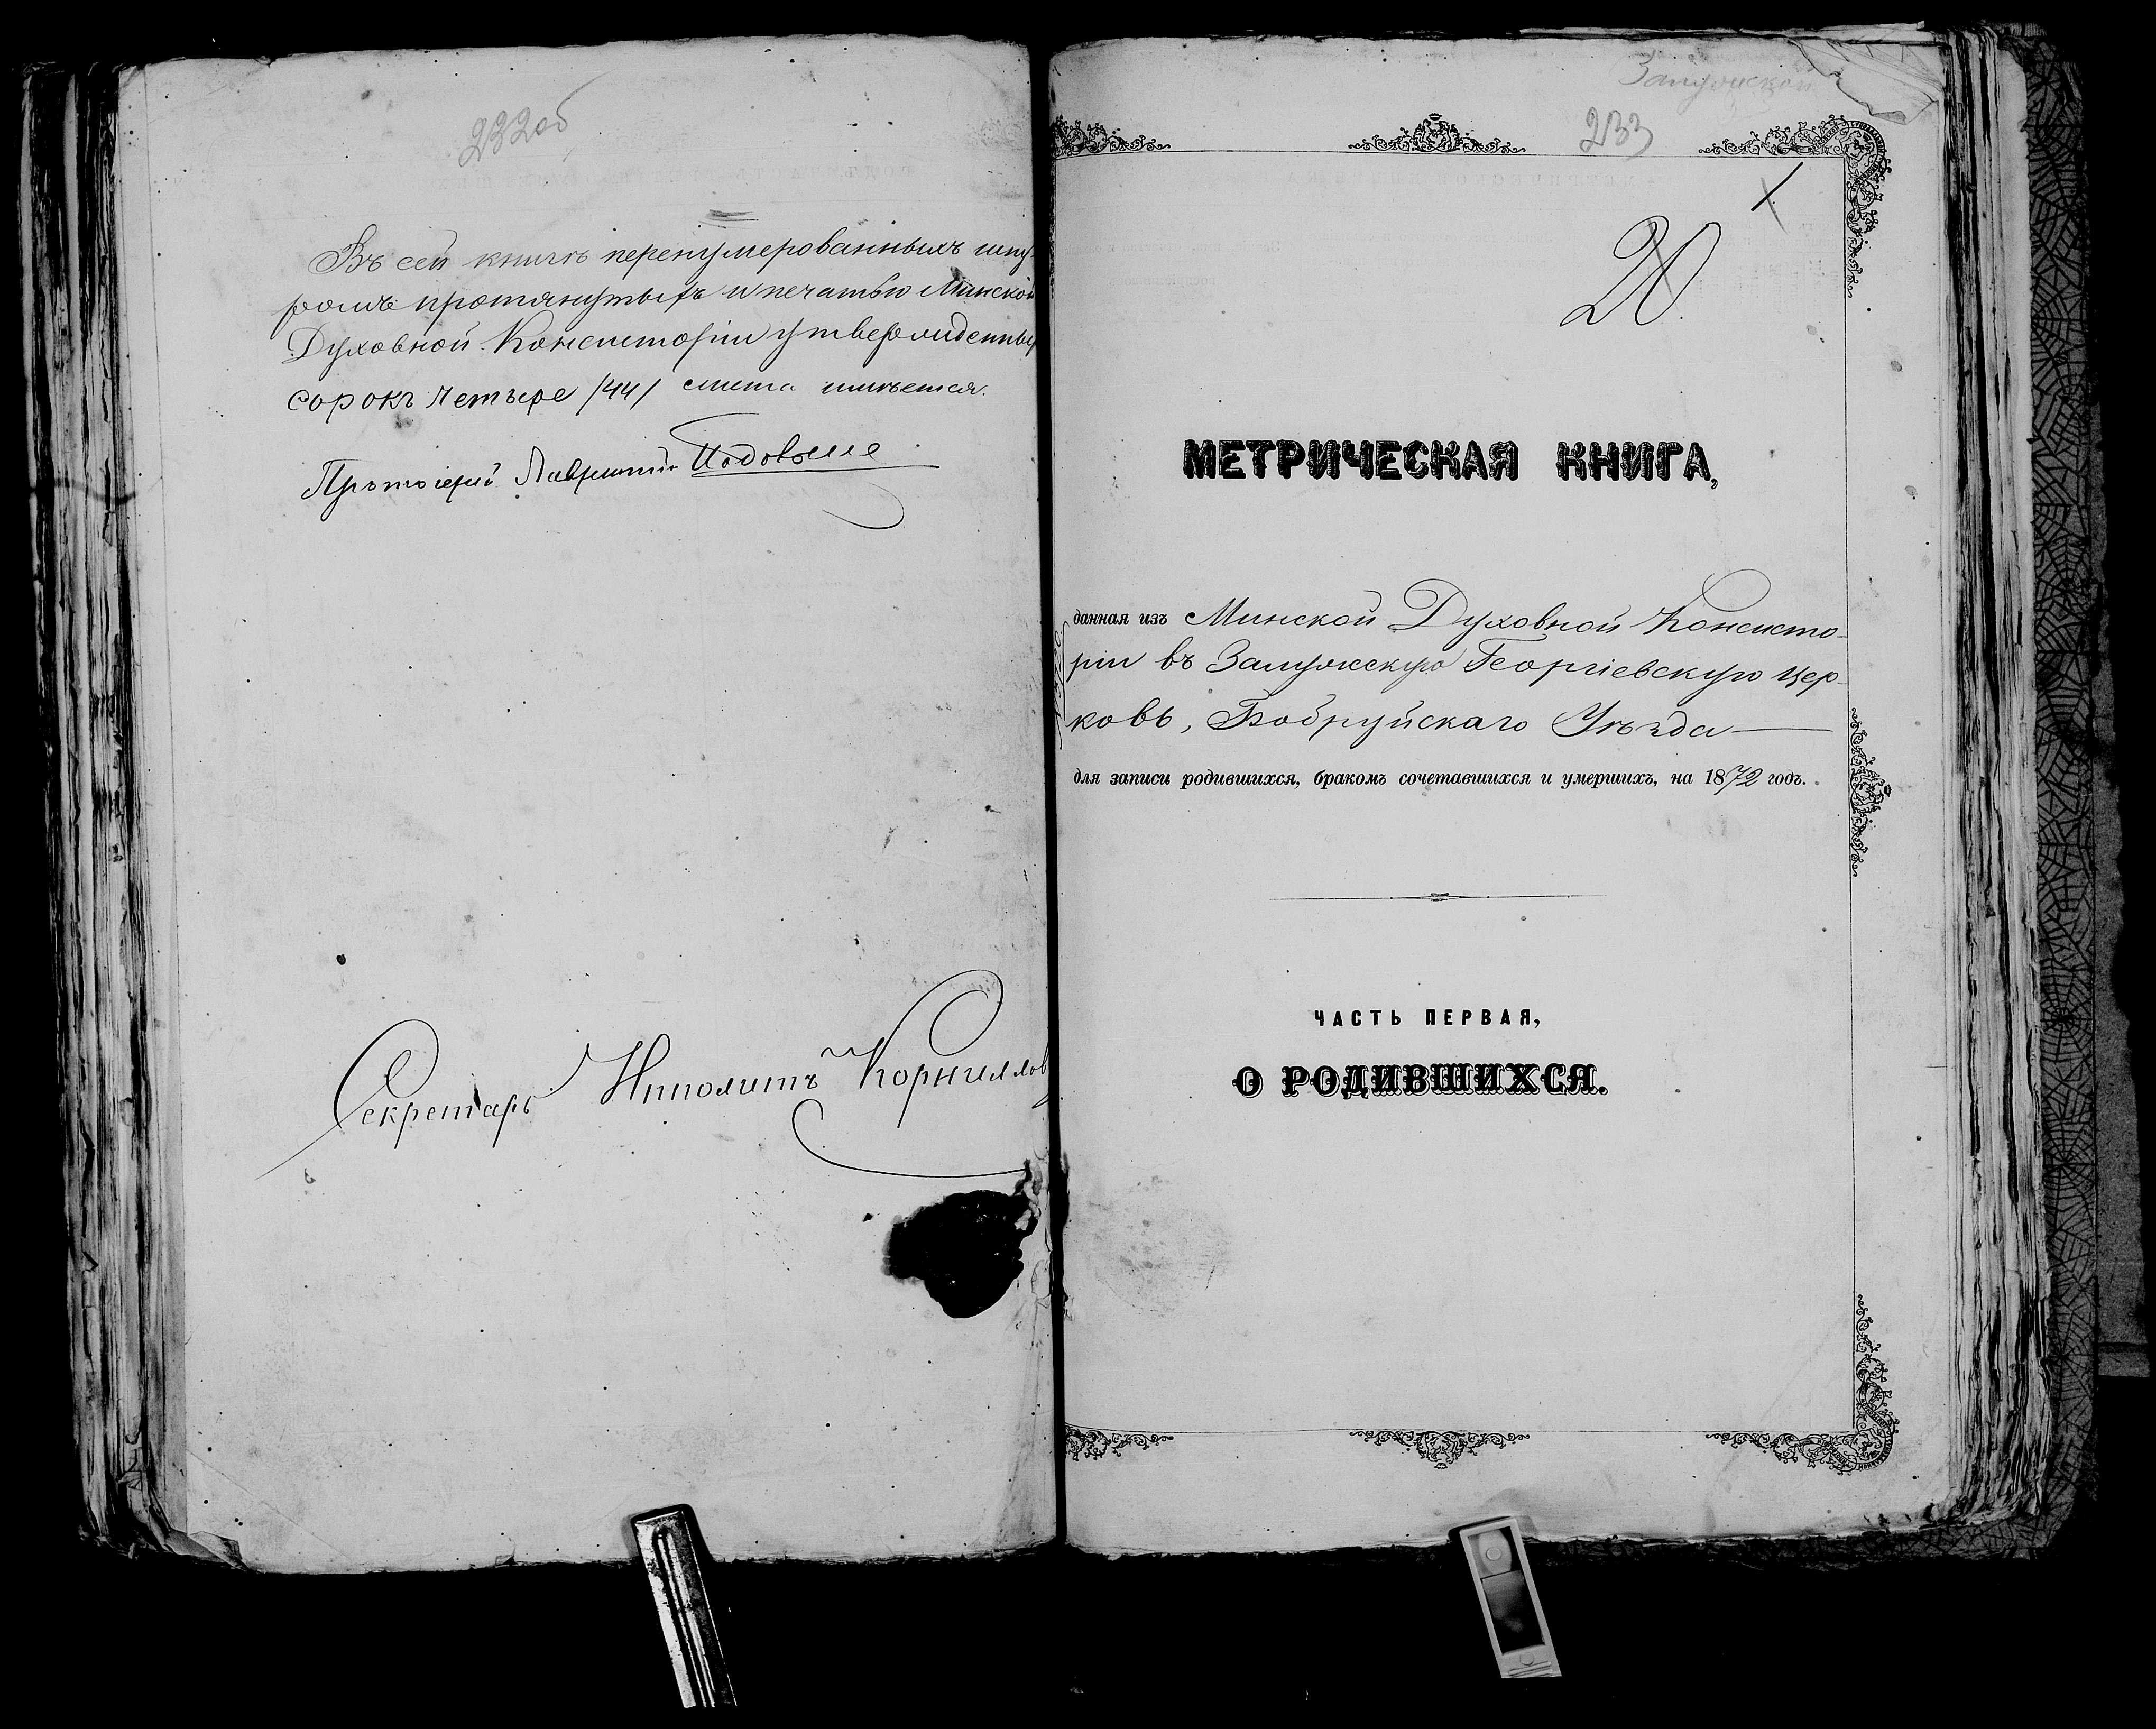 232об
Въ сей книгѣ перенумерованныхъ шну-
ромъ протянутыхъ и печатью Минской
Духовной Консисторіи утвержденныхъ
сорокъ четыре /44/ листа имѣется.
Протоіерей Лаврентій
Секретарь Ипполитъ Корниллов
Залужской
233
1
20
МЕТРИЧЕСКАЯ КНИГА,
данная изъ Минской Духовной Консисто-
ріи въ Залужскую Георгіевскую цер-
ковь, Бобруйскаго Уѣзда —
для записи родившихся, бракомъ сочетавшихся и умершихъ, на 1872 годъ.
ЧАСТЬ ПЕРВАЯ,
О РОДИВШИХСЯ.